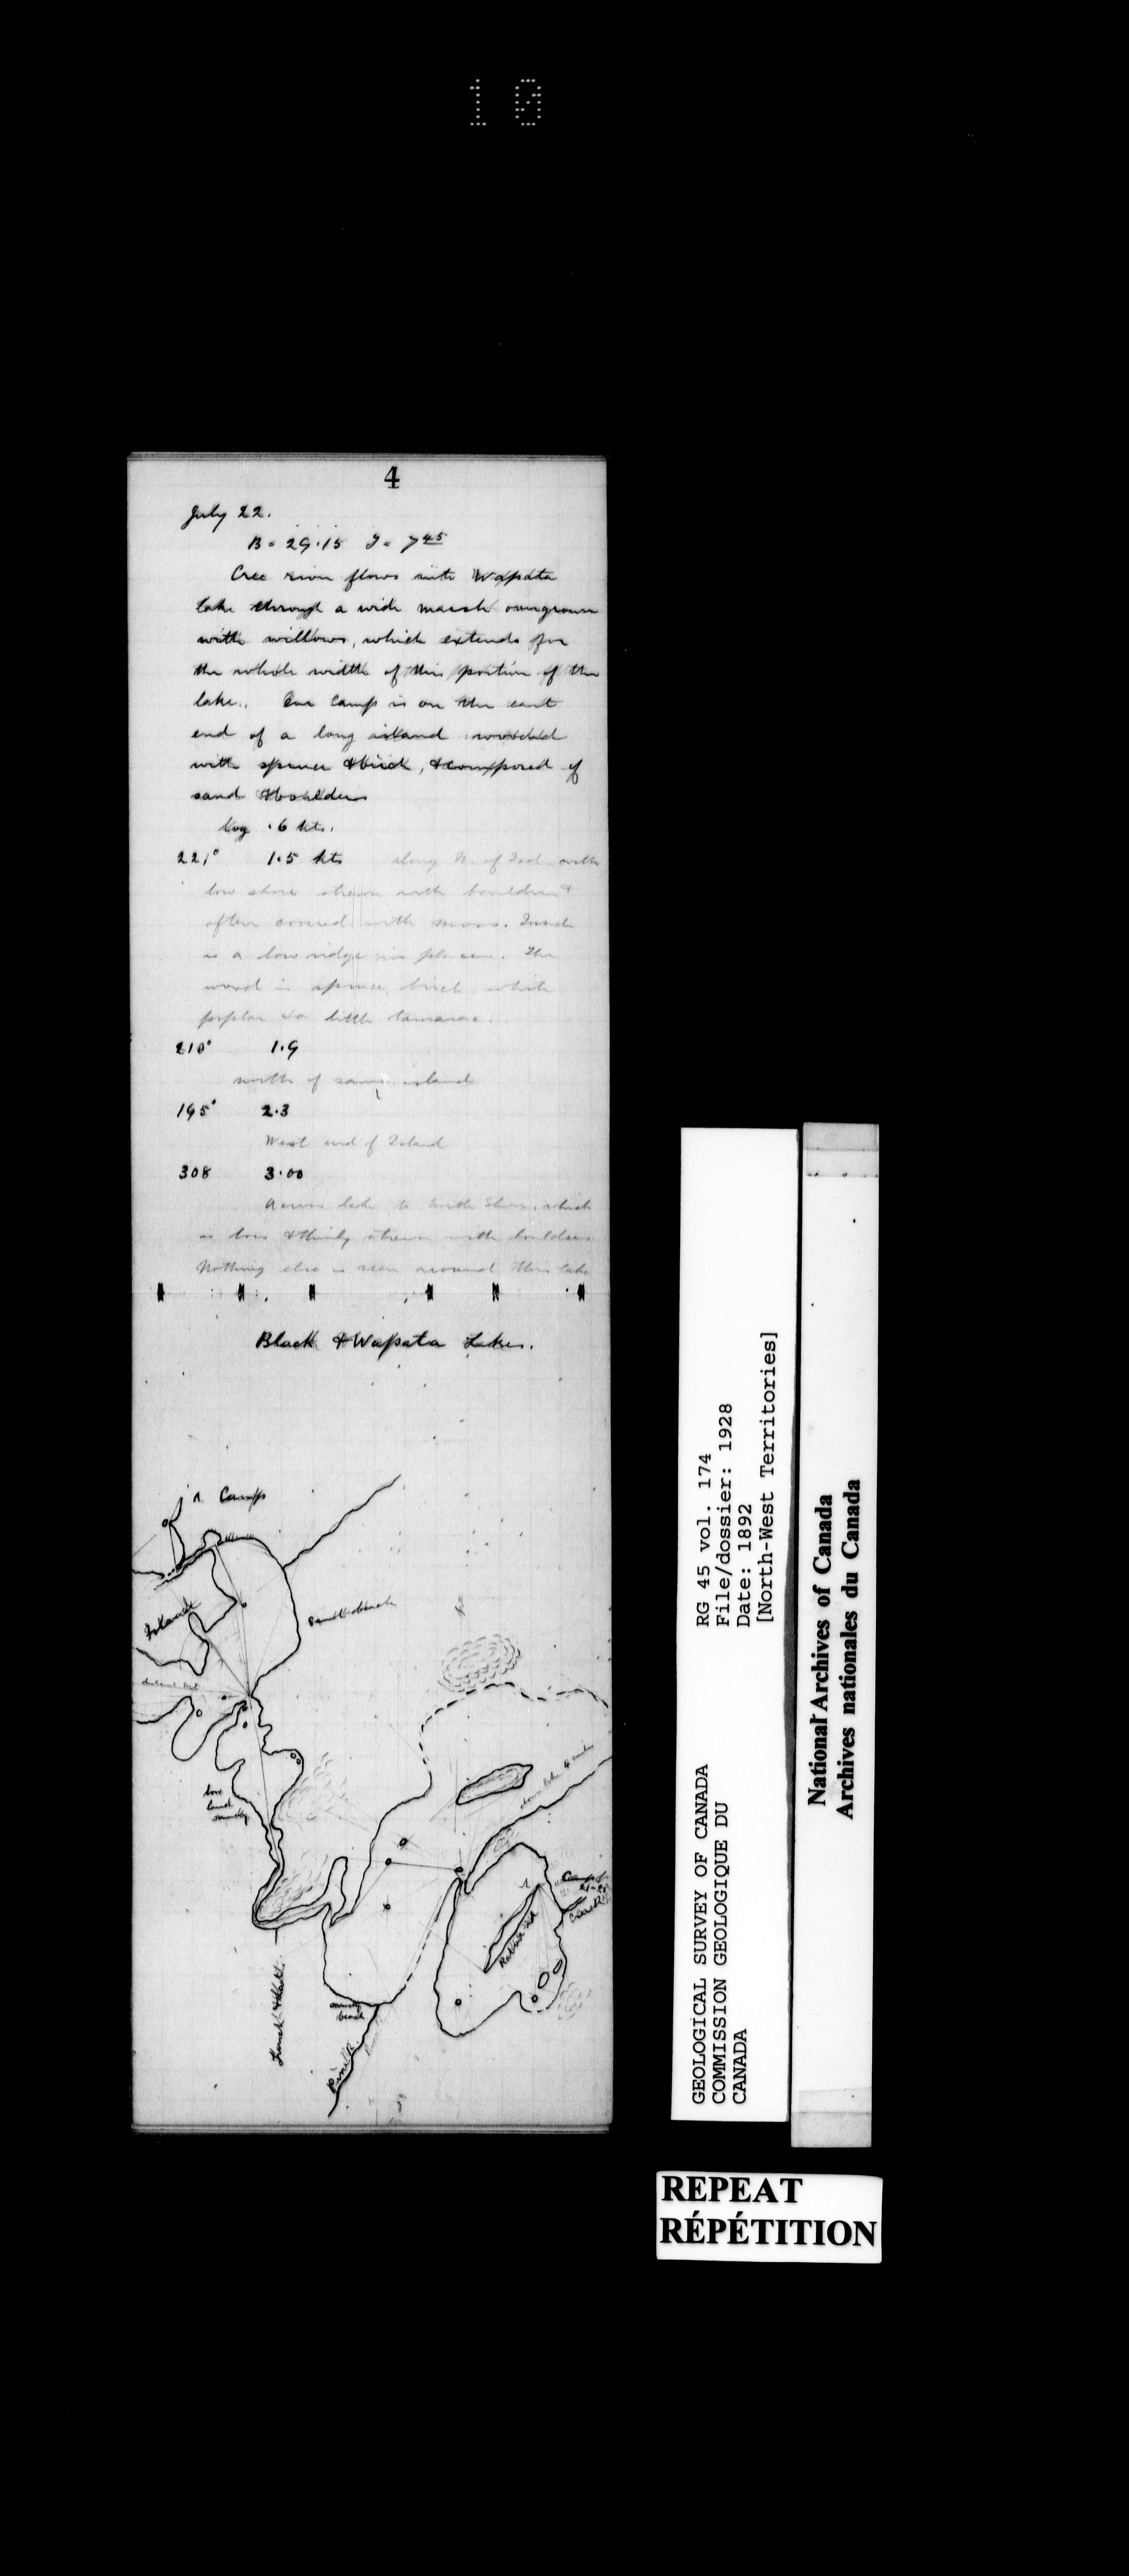 10
4
July 22.
B = 29.15 T = 7 45
Cree river flows into Wapata
lake through a wide marsh overgrown
with willows, which extends for
the whole width of this portion of the
lake. Our camp is on the east
end of a long island wooded
with spruce & birch, & composed of
sand & boulders
Log .6 kts.
221° 1.5 kts along N. of Isd. with
low shore strewn with boulders &
often covered with moss. Inside
is a low ridge in places. The
wood is spruce, birch, white
poplar & a little tamarac.
210° 1.9
north of same island
195° 2.3
West end of Island
308 3.00
Across lake to north shore, which
is low & thinly strewn with boulders.
Nothing else is seen around this lake
Black & Wapata Lakes.
Camp
Island
Sand beach
low
land
sandy
Camp
21-22
Rabbit Isd
beach
Pine R.
RG 45 vol. 174
File/dossier: 1928
Date: 1892
[North-West Territories]
GEOLOGICAL SURVEY OF CANADA
COMMISSION GEOLOGIQUE DU
CANADA
National Archives of Canada
Archives nationales du Canada
REPEAT
RÉPÉTITION